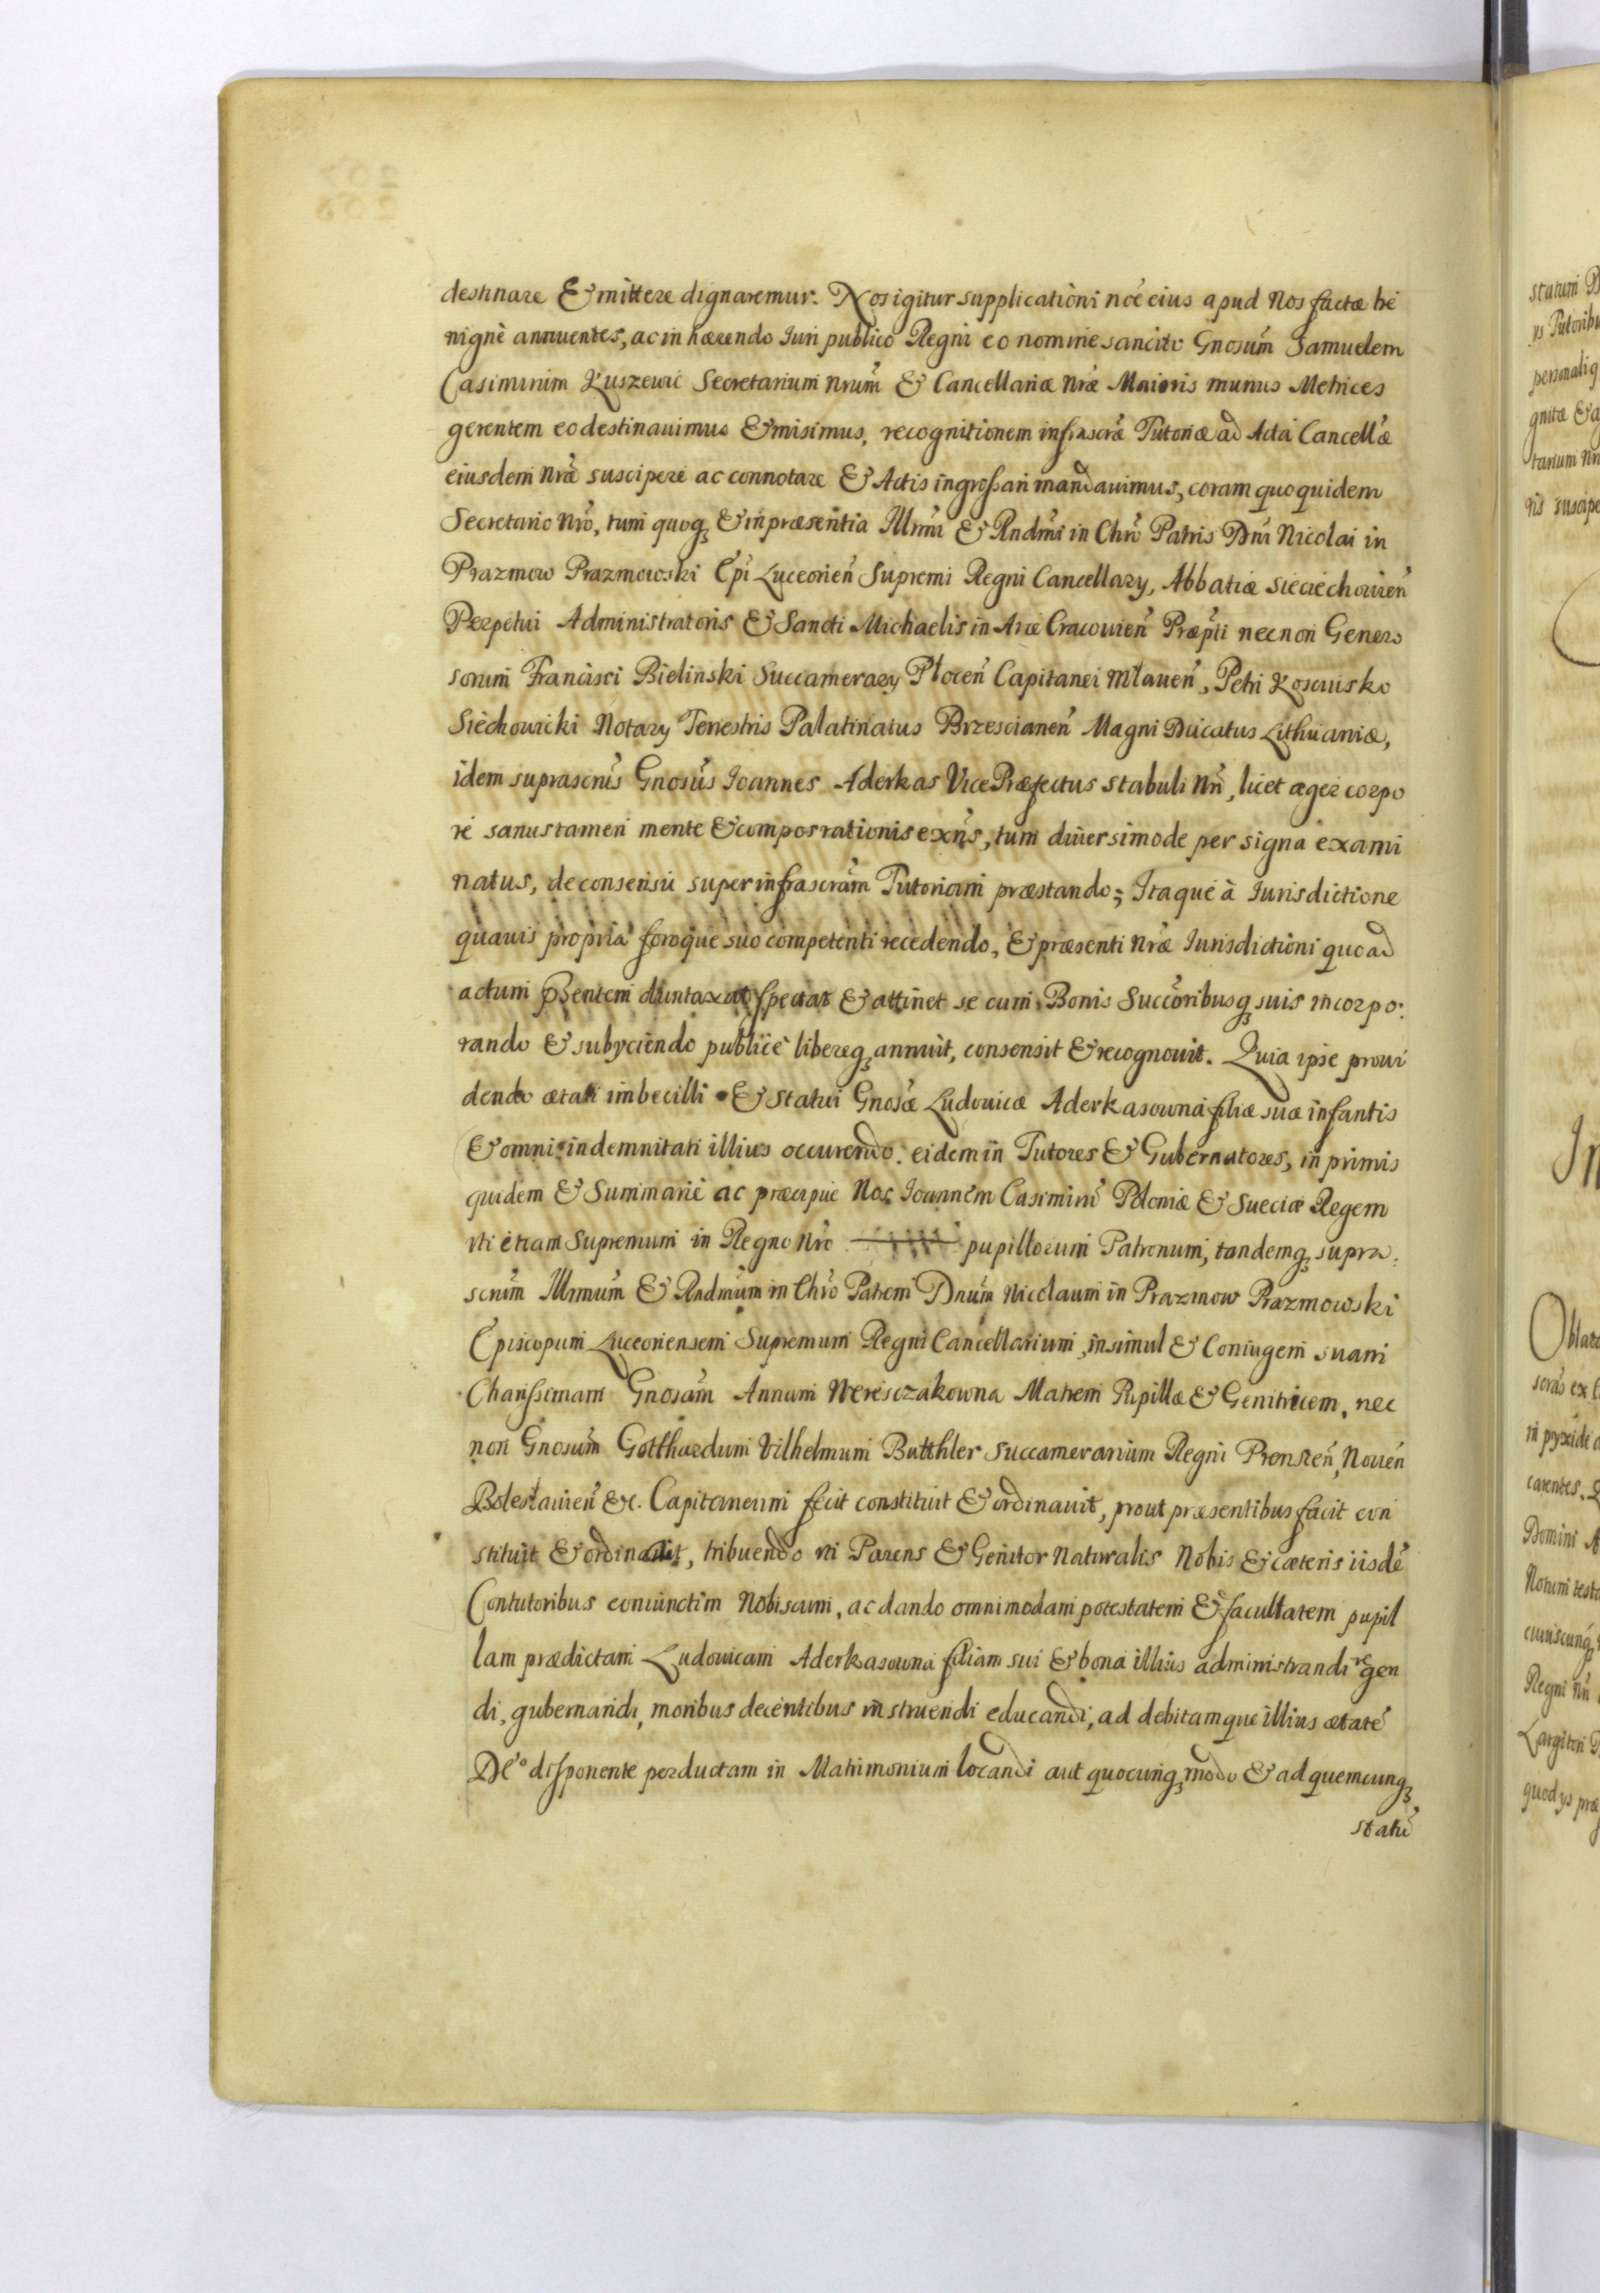 destinare & mittere dignaremur. Nos igitur supplicationi noê eius apud Nos factæ be
nignè annuentes, ac in hærendo Iuri publico Regni eo nomine sancito Gnosum̃ Samuelem
Casimirum Kuszewic Secretarium Nrum̃ & Cancellariæ Nræ̃ Maioris munus Metrices
gerentem eo destinauimus & misimus, recognitionem infrascræ̃ Tutoriæ ad Acta Cancellæ̃
eiusdem Nræ̃ suscipere ac connotare & Actis ingrossari mandauimus, coram quo quidem
Secretario Nrõ, tum quoq; & in præsentia Illrmi & Rndmi in Chrõ Patris Dnĩ Nicolai in
Prazmow Prazmowski Epĩ Luceorien̄ Supremi Regni Cancellary, Abbatiæ Sieciechouien̄
Perpetui Administratoris & Sancti Michaelis in Arce Cracouien̄ Præpti necnon Genero
sorum Francisci Bielinski Succamerary Plocen̄ Capitanei Mlauen̄, Petri Kosciusko
Siechowicki Notary Terrestris Palatinatus Brzescianen̄ Magni Ducatus Lithuaniæ,
idem suprascrus̃ Gnosus̃ Ioannes Aderkas Vice Præfectus stabuli Nrĩ, licet æger corpo
re sanus tamen mente & compos rationis exns̃, tum diuersimode per signa exami
natus, de consensu super infrascram̃ Tutoriam præstando; Itaque à Iurisdictione
quauis propria foroque suo competenti recedendo, & præsenti Nræ̃ Iurisdictioni quoad
actum pñsentem duntaxat spectat & attinet se cum Bonis Succoribusq; suis incorpo:
rando & subyciendo publicè libereq; annuit, consensit & recognouit. Quia ipse proui
dendo ætati imbecilli & statui Gnosæ̃ Ludouicæ Aderkasowna filiæ suæ infantis
& omni indemnitati illius occurendo. eidem in Tutores & Gubernatores, in primis
quidem & Summariè ac præcipue Nos Ioannem Casimirũ Poloniæ & Sueciæ Regem
vti etiam Supremum in Regno Nrõ pupillorum Patronum, tandemq; supra:
scrum̃ Illrmum̃ & Rndmum̃ in Chrõ Patrem Dnum̃ Nicolaum in Prazmow Prazmowski
Episcopum Luceoriensem Supremum Regni Cancellarium, insimul & Coniugem suam
Charissimam Gnosam̃ Annam Neresczakowna Matrem Pupillæ & Genitricem, nec
non Gnosum̃ Gotthardum Vilhelmum Butthler Succamerarium Regni Prensnen̄, Nouen̄
Boleslauien̄ &c. Capitaneum fecit constituit & ordinauit, prout præsentibus facit con
stituit & ordinat, tribuendo vti Parens & Genitor Naturalis Nobis & cæteris iisdẽ
Contutoribus coniunctim Nobiscum, ac dando omnimodam potestatem & facultatem pupil
lam prædictam Ludouicam Aderkasowna filiam sui & bona illius administrandi regen
di, gubernandi, moribus decentibus instruendi educandi, ad debitamque illius ætatẽ
Deo disponente perductam in Matrimonium locandi aut quocunq; modo & ad quemcunq;
statũ